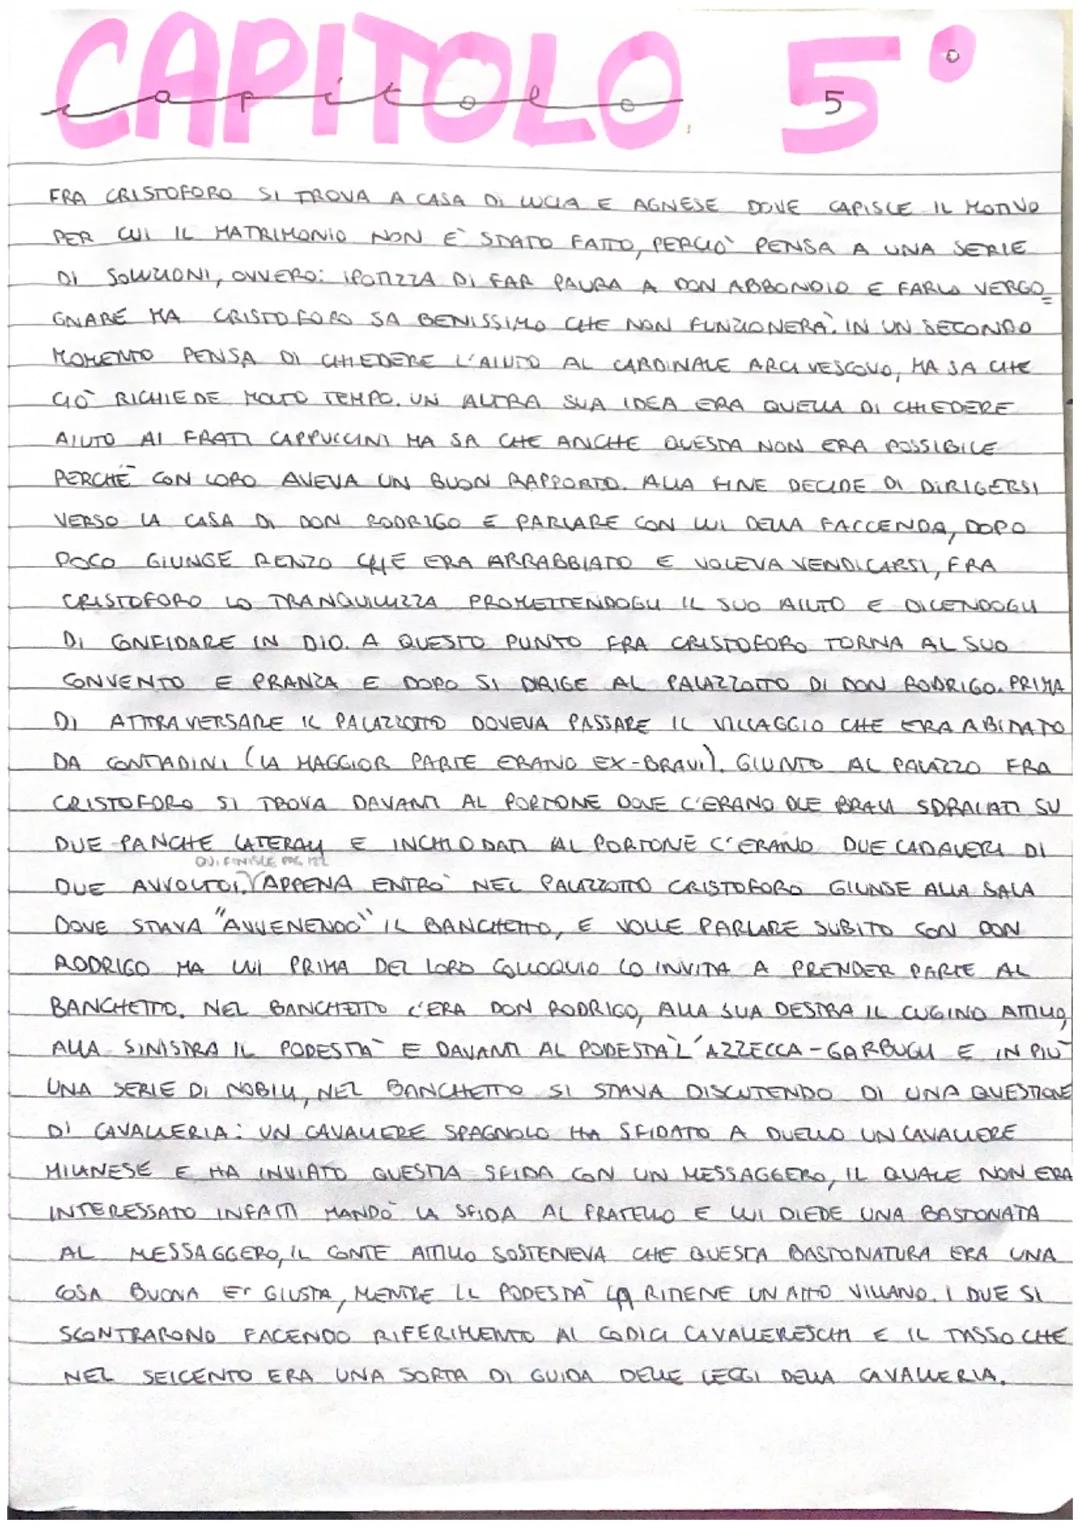 CAPITOLO 5°
capitolo 5°
FRA CRISTOFORO SI TROVA A CASA DI LUCIA E AGNESE DOVE CAPISCE IL MOTIVO
PER CUI IL MATRIMONIO NON E' STATO FATTO, PERCIO' PENSA A UNA SERIE
DI SOLUZIONI, OVVERO: IPOTIZZA DI FAR PAURA A DON ABBONDIO E FARLO VERGO_
GNARE MA CRISTOFORO SA BENISSIMO CHE NON FUNZIONERA'. IN UN SECONDO
MOMENTO PENSA DI CHIEDERE L'AIUTO AL CARDINALE ARCIVESCOVO, MA SA CHE
CIO' RICHIEDE MOLTO TEMPO. UN ALTRA SUA IDEA ERA QUELLA DI CHIEDERE
AIUTO AI FRATI CAPPUCCINI MA SA CHE ANCHE QUESTA NON ERA POSSIBILE
PERCHE' CON LORO AVEVA UN BUON RAPPORTO. ALLA FINE DECIDE DI DIRIGERSI
VERSO LA CASA DI DON RODRIGO E PARLARE CON LUI DELLA FACCENDA, DOPO
POCO GIUNGE RENZO CHE ERA ARRABBIATO E VOLEVA VENDICARSI, FRA
CRISTOFORO LO TRANQUILLIZZA PROMETTENDOGLI IL SUO AIUTO E DICENDOGLI
DI CONFIDARE IN DIO. A QUESTO PUNTO FRA CRISTOFORO TORNA AL SUO
CONVENTO E PRANZA E DOPO SI DIRIGE AL PALAZZOTTO DI DON RODRIGO. PRIMA
DI ATTRAVERSARE IL PALAZZOTTO DOVEVA PASSARE IL VILLAGGIO CHE ERA ABITATO
DA CONTADINI (LA MAGGIOR PARTE ERANO EX-BRAVI). GIUNTO AL PALAZZO FRA
CRISTOFORO SI TROVA DAVANTI AL PORTONE DOVE C'ERANO DUE BRAVI SDRAIATI SU
DUE PANCHE LATERALI E INCHIODATI AL PORTONE C'ERANO DUE CADAVERI DI
QUI FINISCE PAG 122
DUE AVVOLTOI. APPENA ENTRO' NEL PALAZZOTTO CRISTOFORO GIUNSE ALLA SALA
DOVE STAVA "AVVENENDO" IL BANCHETTO, E VOLLE PARLARE SUBITO CON DON
RODRIGO MA LUI PRIMA DEL LORO COLLOQUIO LO INVITA A PRENDER PARTE AL
BANCHETTO. NEL BANCHETTO C'ERA DON RODRIGO, ALLA SUA DESTRA IL CUGINO ATTILIO,
ALLA SINISTRA IL PODESTA' E DAVANTI AL PODESTA' L'AZZECCA-GARBUGLI E IN PIU'
UNA SERIE DI NOBILI, NEL BANCHETTO SI STAVA DISCUTENDO DI UNA QUESTIONE
DI CAVALLERIA: UN CAVALIERE SPAGNOLO HA SFIDATO A DUELLO UN CAVALIERE
MILANESE E HA INVIATO QUESTA SFIDA CON UN MESSAGGERO, IL QUALE NON ERA
INTERESSATO INFATTI MANDO' LA SFIDA AL FRATELLO E LUI DIEDE UNA BASTONATA
AL MESSAGGERO, IL CONTE ATTILIO SOSTENEVA CHE QUESTA BASTONATURA ERA UNA
COSA BUONA E GIUSTA, MENTRE IL PODESTA' LA RITIENE UN ATTO VILLANO. I DUE SI
SCONTRARONO FACENDO RIFERIMENTO AI CODICI CAVALLERESCHI E IL TASSO CHE
NEL SEICENTO ERA UNA SORTA DI GUIDA DELLE LEGGI DELLA CAVALLERIA.